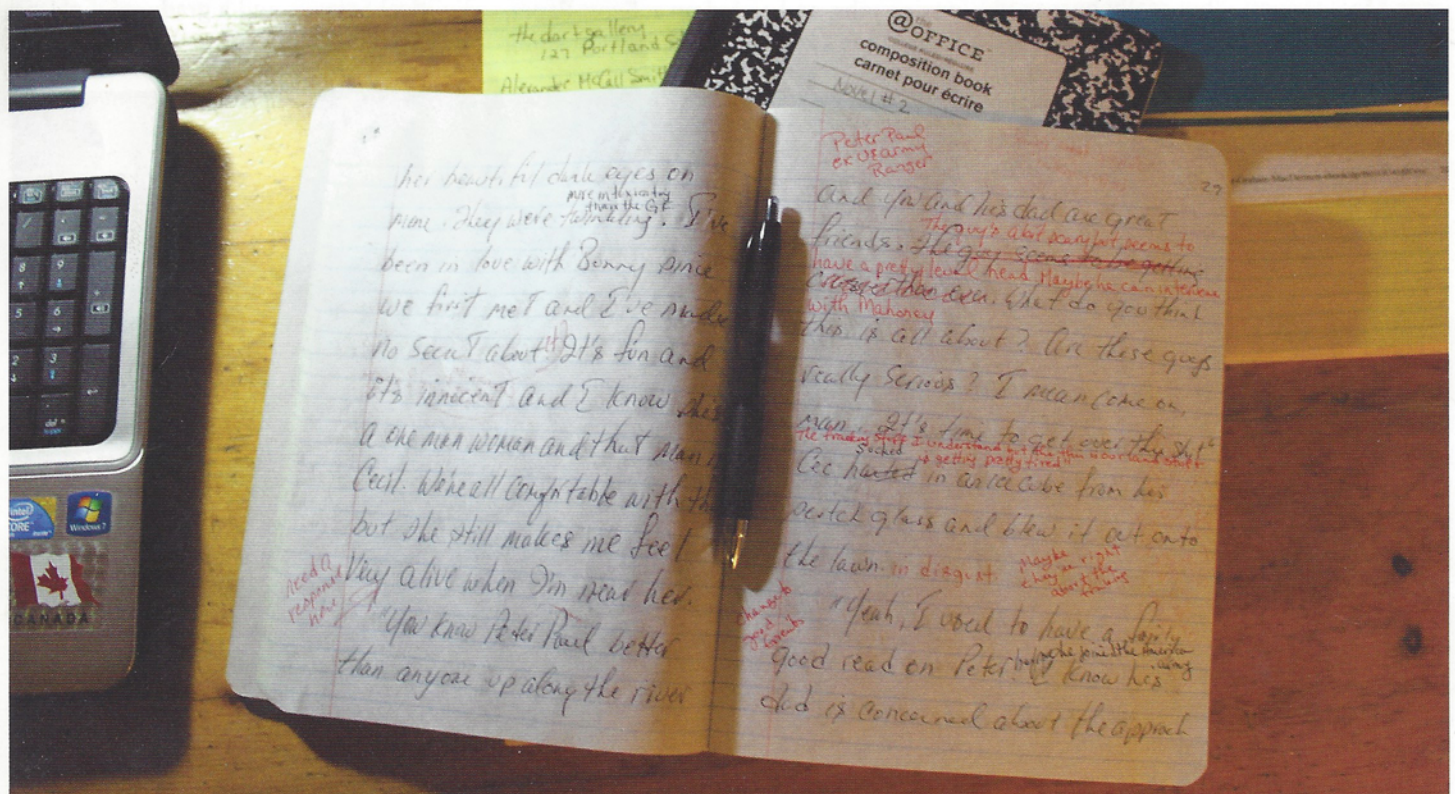 the dart gallery
127 Portland
Alexander McCall Smith
@ the
OFFICE
composition book
carnet pour écrire
Novel #2
her beautiful dark eyes on
more intoxicating
than the G&T
mine. They were twinkling. I've
been in love with Bunny since
we first met and I've made
no secret about it. It's fun and
it's innocent and I know she's
a one man woman and that man is
Cecil. We're all comfortable with th
but she still makes me feel
very alive when I'm near her.
need a
response
here
"You know Peter Paul better
than anyone up along the river
Peter Paul
ex US army
Ranger
29
and you and his dad are great
The guy's a bit scary but seems to
friends. The guy seems to be getting
have a pretty level head. Maybe he can intervene
crazier than ever. What do you think
with Mahoney
this is all about? Are these guys
really serious? I mean come on,
man. It's time to get over this shit"
The trading stuff I understand but the this is our land stuff
is getting pretty tired"
sucked
Cec in an ice cube from his
scotch glass and blew it out onto
the lawn in disgust.
Maybe
they're right
about the
change to
good
friends
"Yeah, I used to have a fairly
good read on Peter before he joined the American
army
I know his
dad is concerned about the approach
intel
CORE
Windows 7
CANADA
7
8
9
2
3
del